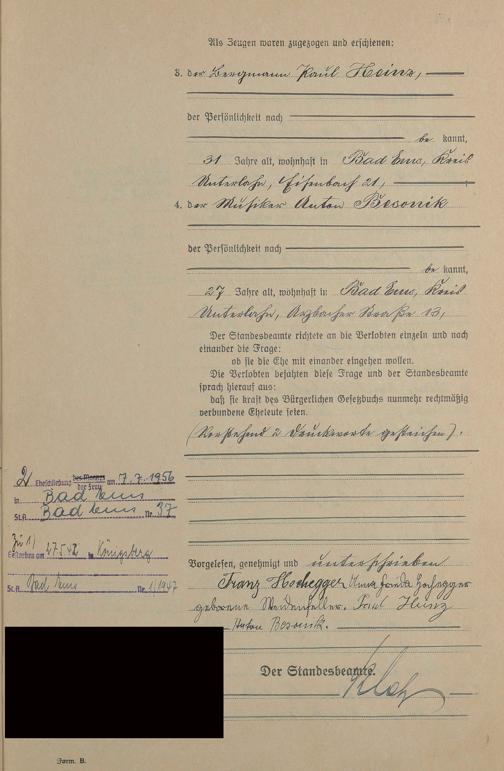 Als Zeugen waren zugezogen und erschienen:
3. der Bergmann Paul Heinz,
der Persönlichkeit nach
be kannt,
31 Jahre alt, wohnhaft in Bad Ems, Kreis
Unterlahn, Eisenbach 21,
4. der Musiker Anton Besonik
der Persönlichkeit nach
be kannt,
27 Jahre alt, wohnhaft in Bad Ems, Kreis
Unterlahn, Arzbacher Straße 13,
Der Standesbeamte richtete an die Verlobten einzeln und nach
einander die Frage:
ob sie die Ehe mit einander eingehen wollen.
Die Verlobten bejahten diese Frage und der Standesbeamte
sprach hierauf aus:
daß sie kraft des Bürgerlichen Gesetzbuchs nunmehr rechtmäßig
verbundene Eheleute seien.
(Vorstehend 2 Druckworte gestrichen).
2) Eheschließung des Mannes am 7.7.1956
der Frau
in Bad Ems
St.A. Bad Ems Nr. 37
Zu 1)
Gestorben am 27.5.42 in Königsberg
St.A. Bad Ems Nr. 1/1947
Vorgelesen, genehmigt und unterschrieben
Franz Hochegger Anna Frieda Hochegger
geborene Weidenfeller. Paul Heinz
Anton Besonik.
Der Standesbeamte.
Form. B.